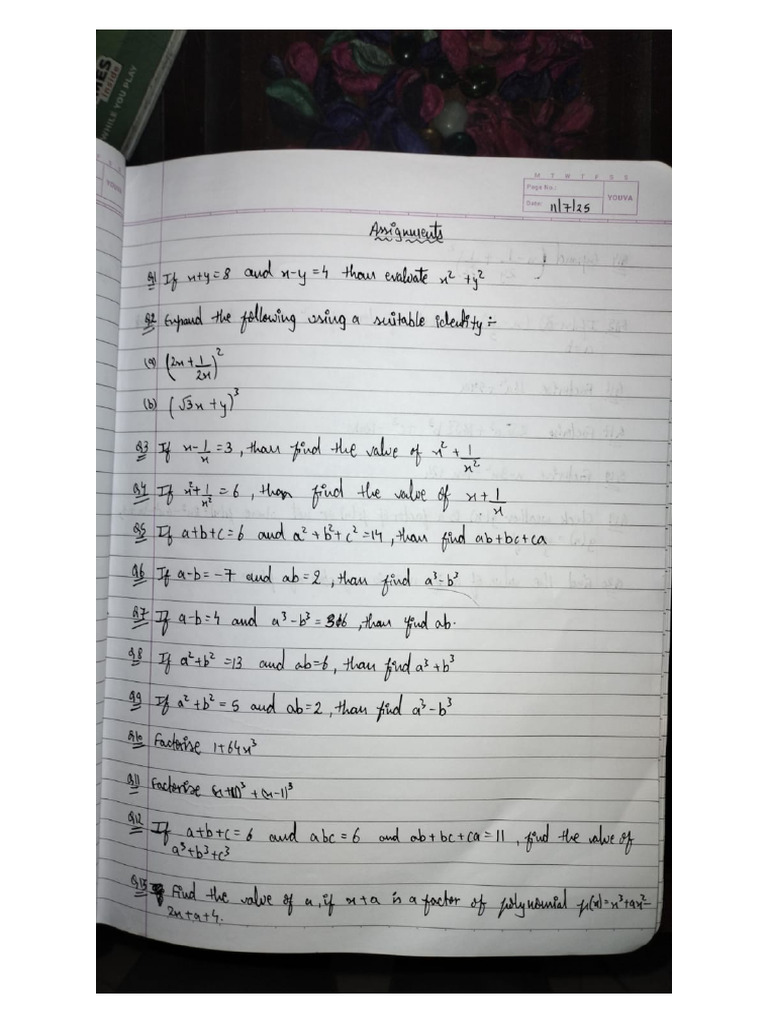 MES
inside
WHILE YOU PLAY
YOUVA
M T W T F S S
Page No.:
Date: 11/7/25
YOUVA
Assignments
Q1 If x+y=8 and x-y=4 than evaluate x² + y²
Q2 Expand the following using a suitable identity:-
(a) (2x + 1/2x)²
(b) (√3x + y)³
Q3 If x - 1/x = 3, than find the value of x² + 1/x²
Q4 If x² + 1/x² = 6, than find the value of x + 1/x
Q5 If a+b+c=6 and a²+b²+c²=14, than find ab+bc+ca
Q6 If a-b=-7 and ab=2, than find a³-b³
Q7 If a-b=4 and a³-b³=316, than find ab.
Q8 If a²+b²=13 and ab=6, than find a³+b³
Q9 If a²+b²=5 and ab=2, than find a³-b³
Q10 Factorise 1+64x³
Q11 Factorise (x+1)³+(x-1)³
Q12 If a+b+c=6 and abc=6 and ab+bc+ca=11, find the value of
a³+b³+c³
Q13 Find the value of a, if x+a is a factor of polynomial p(x)=x³+ax²-
2x+a+4.